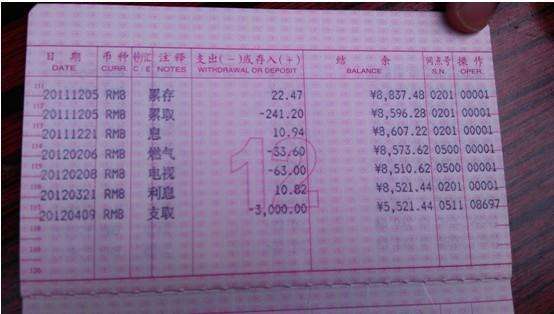 日期 币种 钞汇 注释 支出(-)或存入(+) 结余 网点号 操作
DATE CURR. C E NOTES WITHDRAWAL OR DEPOSIT BALANCE S.N. OPER.
20111205 RMB 累存 22.47 ¥8,837.48 0201 00001
20111205 RMB 累取 -241.20 ¥8,596.28 0201 00001
20111221 RMB 息 10.94 ¥8,607.22 0201 00001
20120206 RMB 燃气 -33.60 ¥8,573.62 0500 00001
20120208 RMB 电视 -63.00 ¥8,510.62 0500 00001
20120321 RMB 利息 10.82 ¥8,521.44 0201 00001
20120409 RMB 支取 -3,000.00 ¥5,521.44 0511 08697
12